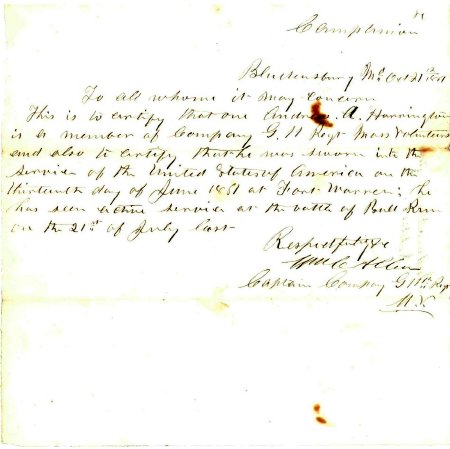 Companion
Bladensburg Md Oct 21st 1861
To all whome it may concern
This is to certify that one Andrew A. Harrington
is a member of Company G. 11 Regt Mass Volunteers
and also to certify that he was sworn into the
service of the United States of America on the
thirteenth day of June 1861 at Fort Warren; he
has seen active service at the battle of Bull Run
on the 21st of July last
Respectfully &c
Wm C Allen
Captain Company G 11th Regt
M.V.